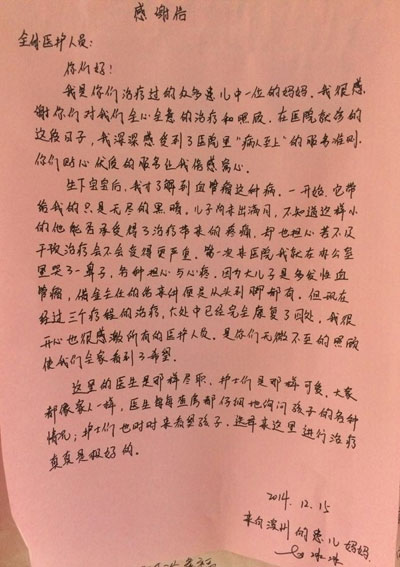 感谢信
全体医护人员:
你们好!
我是你们治疗过的众多患儿中一位的妈妈。我很感
谢你们对我们全心全意的治疗和照顾。在医院就诊的
这段日子,我深深感受到了医院里“病人至上”的服务准则.
你们贴心优质的服务让我倍感窝心。
生下宝宝后,我才了解到血管瘤这种病。一开始,它带
给我的只是无尽的黑暗。儿子尚未出满月,不知道这样小
的他能否承受得了治疗带来的疼痛,却也担心若不及
干预治疗会不会变得更严重。第一次来医院我就在办公室
里哭了一鼻子,各种担心与心疼。因为大儿子是多发性血
管瘤,借金主任的话来讲便是从头到脚都有。但现在
经过三个疗程的治疗,大处中已经完全康复了四处,我很
开心也很感激所有的医护人员。是你们无微不至的照顾
使我们全家看到了希望。
这里的医生是那样尽职,护士们是那样可爱。大家
都像家人一样,医生每每查房都仔细地询问孩子的各种
情况;护士们也时时来看望孩子。选择来这里进行治疗
真真是极好的。
2014.12.15
来自滨州的患儿妈妈.
冰冰